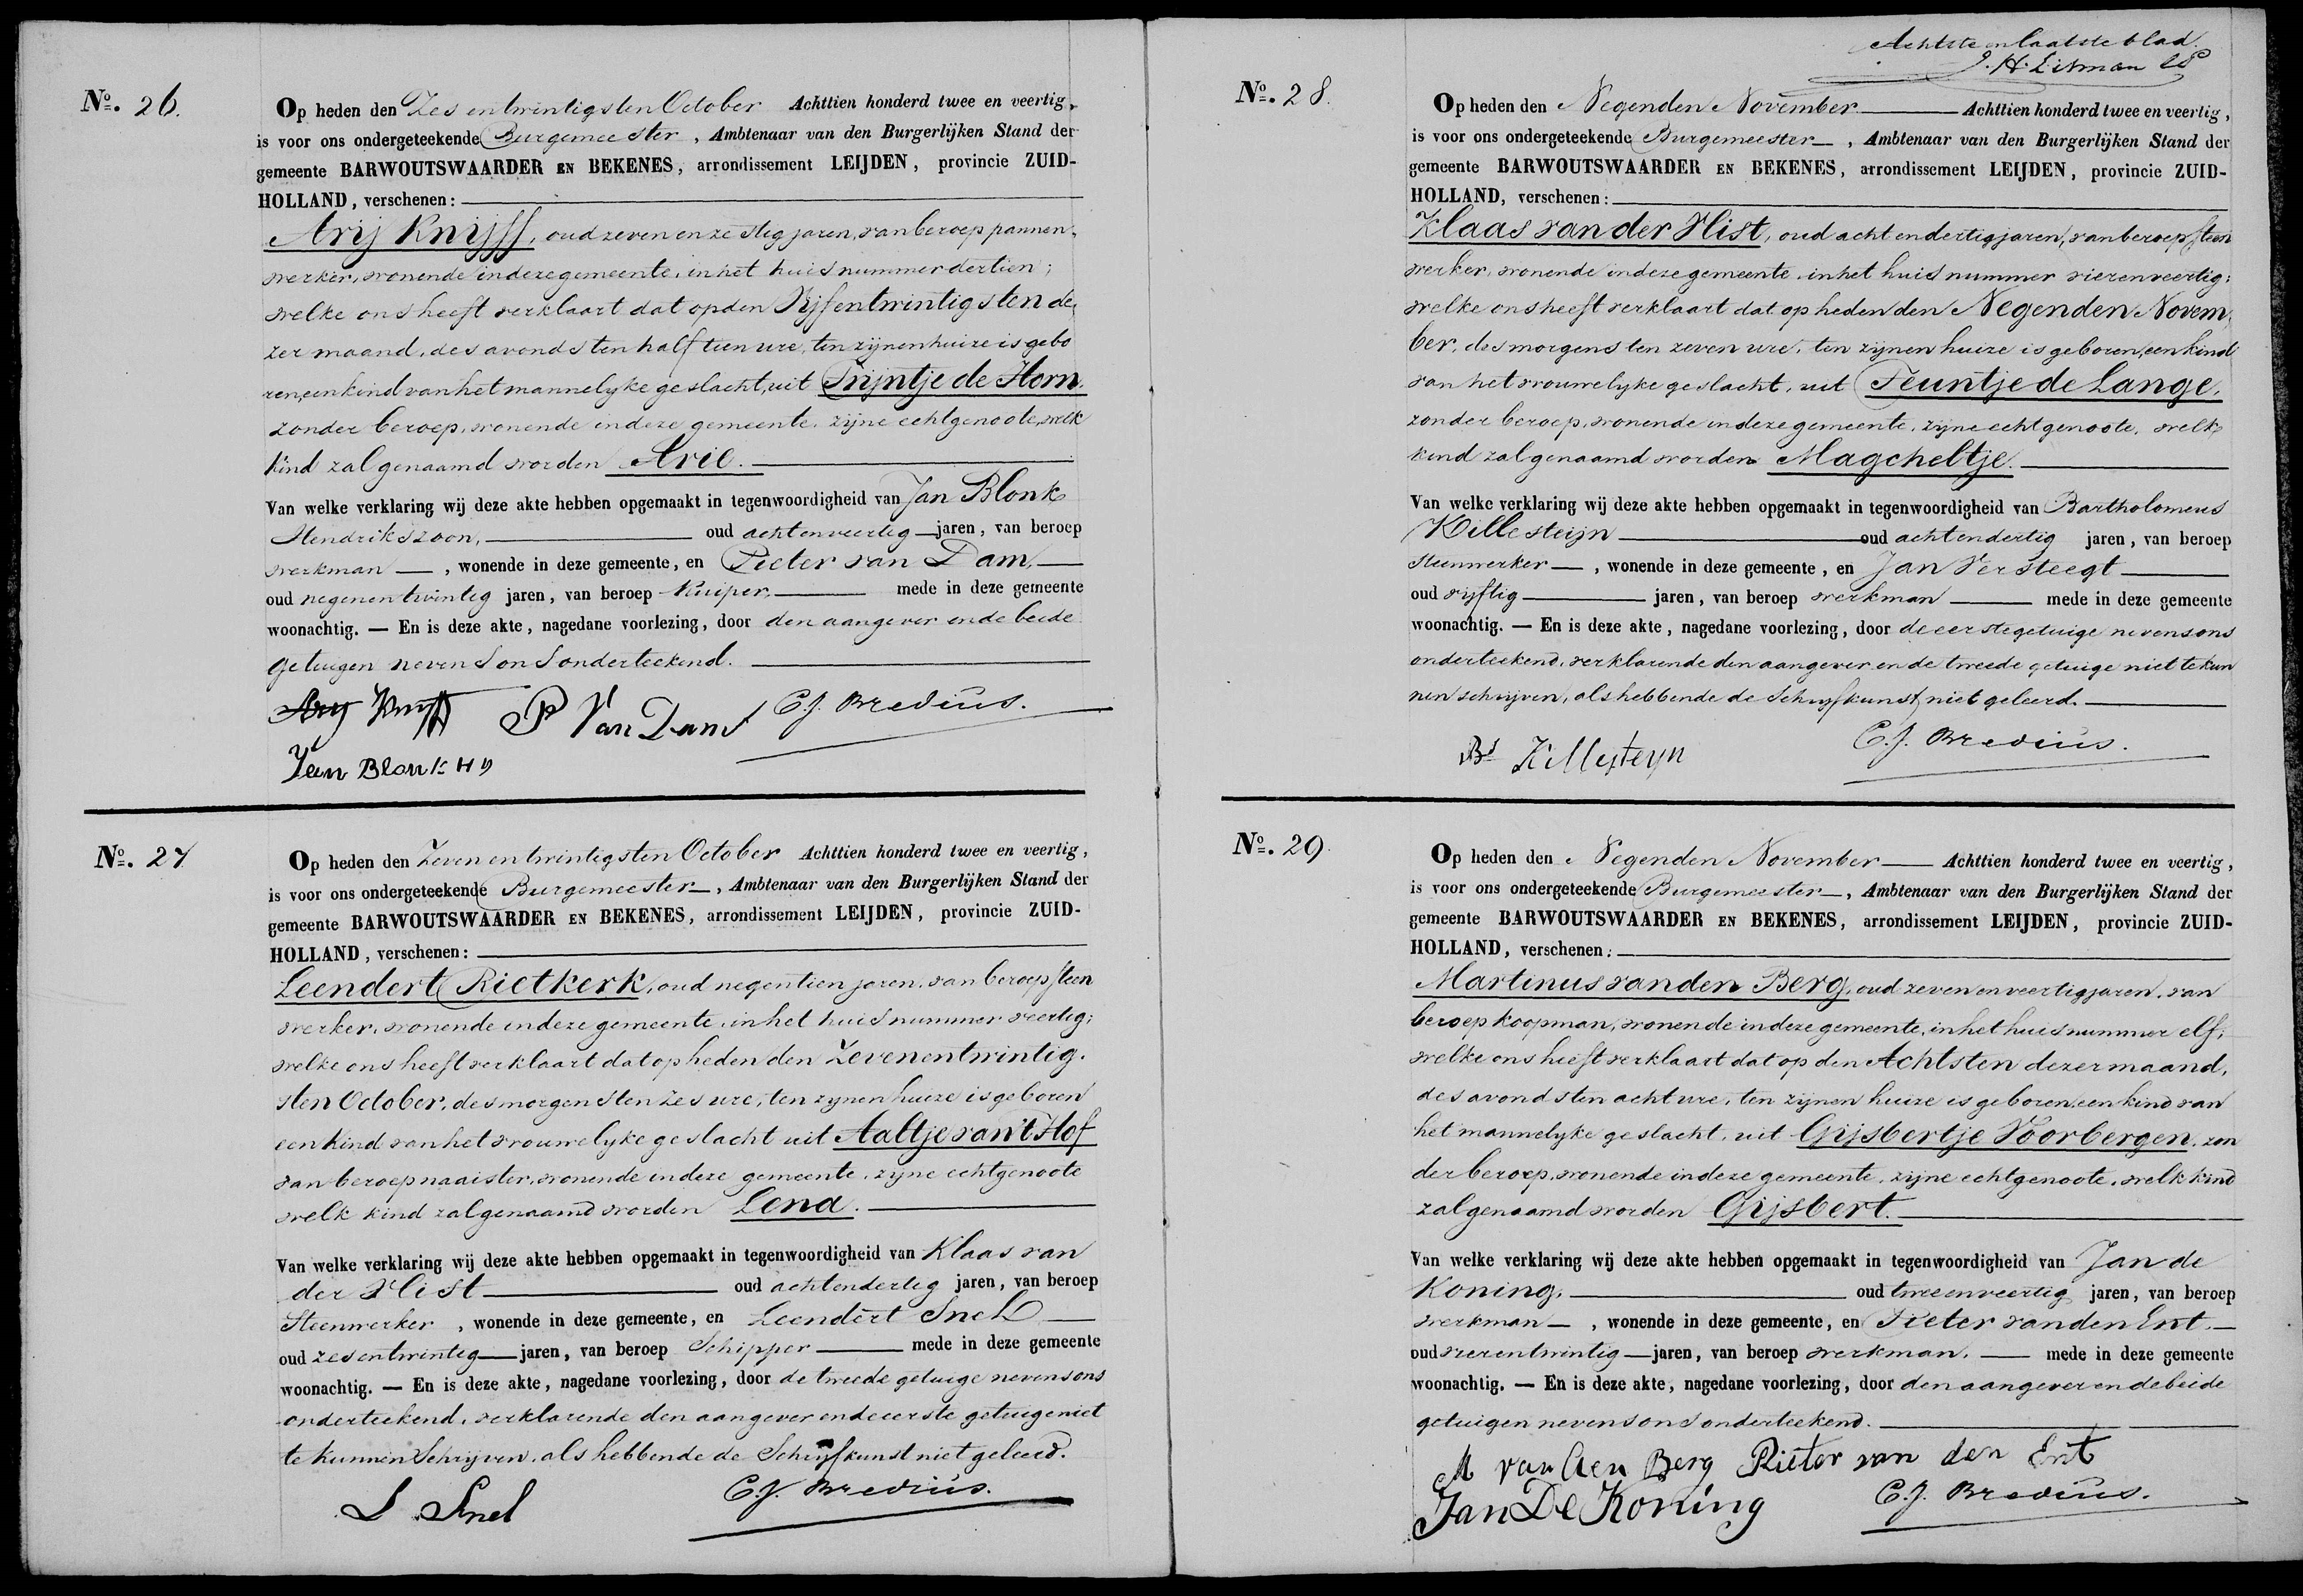 No. 26.
Op heden den Zes en twintigsten October Achttien honderd twee en veertig,
is voor ons ondergeteekende Burgemeester, Ambtenaar van den Burgerlijken Stand der
gemeente BARWOUTSWAARDER EN BEKENES, arrondissement LEIJDEN, provincie ZUID-
HOLLAND, verschenen:
Arij Knijff, oud zeven en zestig jaren, van beroep pannen-
werker, wonende in deze gemeente, in het huis nummer dertien;
welke ons heeft verklaart dat op den Vijfentwintigsten de-
zer maand, des avonds ten half tien ure, ten zijnen huize is gebo
ren, een kind van het mannelyke geslacht, uit Trijntje de Horn.
zonder beroep, wonende in deze gemeente, zijne echtgenoote, welk
kind zal genaamd worden Arie.
Van welke verklaring wij deze akte hebben opgemaakt in tegenwoordigheid van Jan Blonk
Hendrikszoon, oud achtenveertig jaren, van beroep
werkman, wonende in deze gemeente, en Pieter van Dam,
oud negenentwintig jaren, van beroep Kuiper, mede in deze gemeente
woonachtig. — En is deze akte, nagedane voorlezing, door den aangever en de beide
getuigen nevens ons onderteekend.
Arij Knijff P Van Dam C.J. Bredius.
Jan Blonk HD
No. 27
Op heden den Zeven en twintigsten October Achttien honderd twee en veertig,
is voor ons ondergeteekende Burgemeester, Ambtenaar van den Burgerlijken Stand der
gemeente BARWOUTSWAARDER EN BEKENES, arrondissement LEIJDEN, provincie ZUID-
HOLLAND, verschenen:
Leendert Rietkerk, oud negentien jaren, van beroep steen
werker, wonende in deze gemeente, in het huis nummer veertig;
welke ons heeft verklaart dat op heden den Zevenentwintig-
sten October, des morgens ten zes ure, ten zynen huize is geboren
een kind van het vrouwelyke geslacht uit Aaltje van 't Hof
van beroep naaister, wonende in deze gemeente, zijne echtgenoote
welk kind zal genaamd worden Lena.
Van welke verklaring wij deze akte hebben opgemaakt in tegenwoordigheid van Klaas van
der Vlist oud achtendertig jaren, van beroep
Steenwerker, wonende in deze gemeente, en Leendert Snel
oud zesentwintig jaren, van beroep Schipper mede in deze gemeente
woonachtig. — En is deze akte, nagedane voorlezing, door de tweede getuige nevens ons
onderteekend, verklarende den aangever en de eerste getuige niet
te kunnen Schrijven, als hebbende de Schrijfkunst niet geleerd.
L Snel C.J. Bredius.
Achtste en laatste blad.
No. 28.
Op heden den Negenden November Achttien honderd twee en veertig,
is voor ons ondergeteekende Burgemeester, Ambtenaar van den Burgerlijken Stand der
gemeente BARWOUTSWAARDER EN BEKENES, arrondissement LEIJDEN, provincie ZUID-
HOLLAND, verschenen:
Klaas van der Vlist, oud achtendertig jaren, van beroep steen
werker, wonende in deze gemeente, in het huis nummer vierenveertig;
welke ons heeft verklaart dat op heden den Negenden Novem-
ber, des morgens ten zeven ure, ten zijnen huize is geboren, een kind
van het vrouwelyke geslacht, uit Teuntje de Lange,
zonder beroep, wonende in deze gemeente, zijne echtgenoote, welk
kind zal genaamd worden Magcheltje.
Van welke verklaring wij deze akte hebben opgemaakt in tegenwoordigheid van Bartholomeus
Killesteijn oud achtendertig jaren, van beroep
steenwerker, wonende in deze gemeente, en Jan Versteegt
oud vijftig jaren, van beroep werkman mede in deze gemeente
woonachtig. — En is deze akte, nagedane voorlezing, door de eerste getuige nevens ons
onderteekend, verklarende den aangever en de tweede getuige niet te kun
nen schrijven, als hebbende de Schrijfkunst niet geleerd.
Bs Killesteyn C.J. Bredius.
No. 29.
Op heden den Negenden November Achttien honderd twee en veertig,
is voor ons ondergeteekende Burgemeester, Ambtenaar van den Burgerlijken Stand der
gemeente BARWOUTSWAARDER EN BEKENES, arrondissement LEIJDEN, provincie ZUID-
HOLLAND, verschenen:
Martinus van den Berg, oud zevenenveertig jaren, van
beroep koopman, wonende in deze gemeente, in het huis nummer elf;
welke ons heeft verklaart dat op den Achtsten dezer maand,
des avonds ten acht ure, ten zijnen huize is geboren, een kind van
het mannelyke geslacht, uit Gijsbertje Voorbergen, zon
der beroep, wonende in deze gemeente, zijne echtgenoote, welk kind
zal genaamd worden Gijsbert.
Van welke verklaring wij deze akte hebben opgemaakt in tegenwoordigheid van Jan de
Koning, oud tweeenveertig jaren, van beroep
werkman, wonende in deze gemeente, en Pieter van den Ent.
oud vierentwintig jaren, van beroep werkman, mede in deze gemeente
woonachtig. — En is deze akte, nagedane voorlezing, door den aangever en de beide
getuigen nevens ons onderteekend.
M van den Berg Pieter van den Ent
Jan De Koning C.J. Bredius.